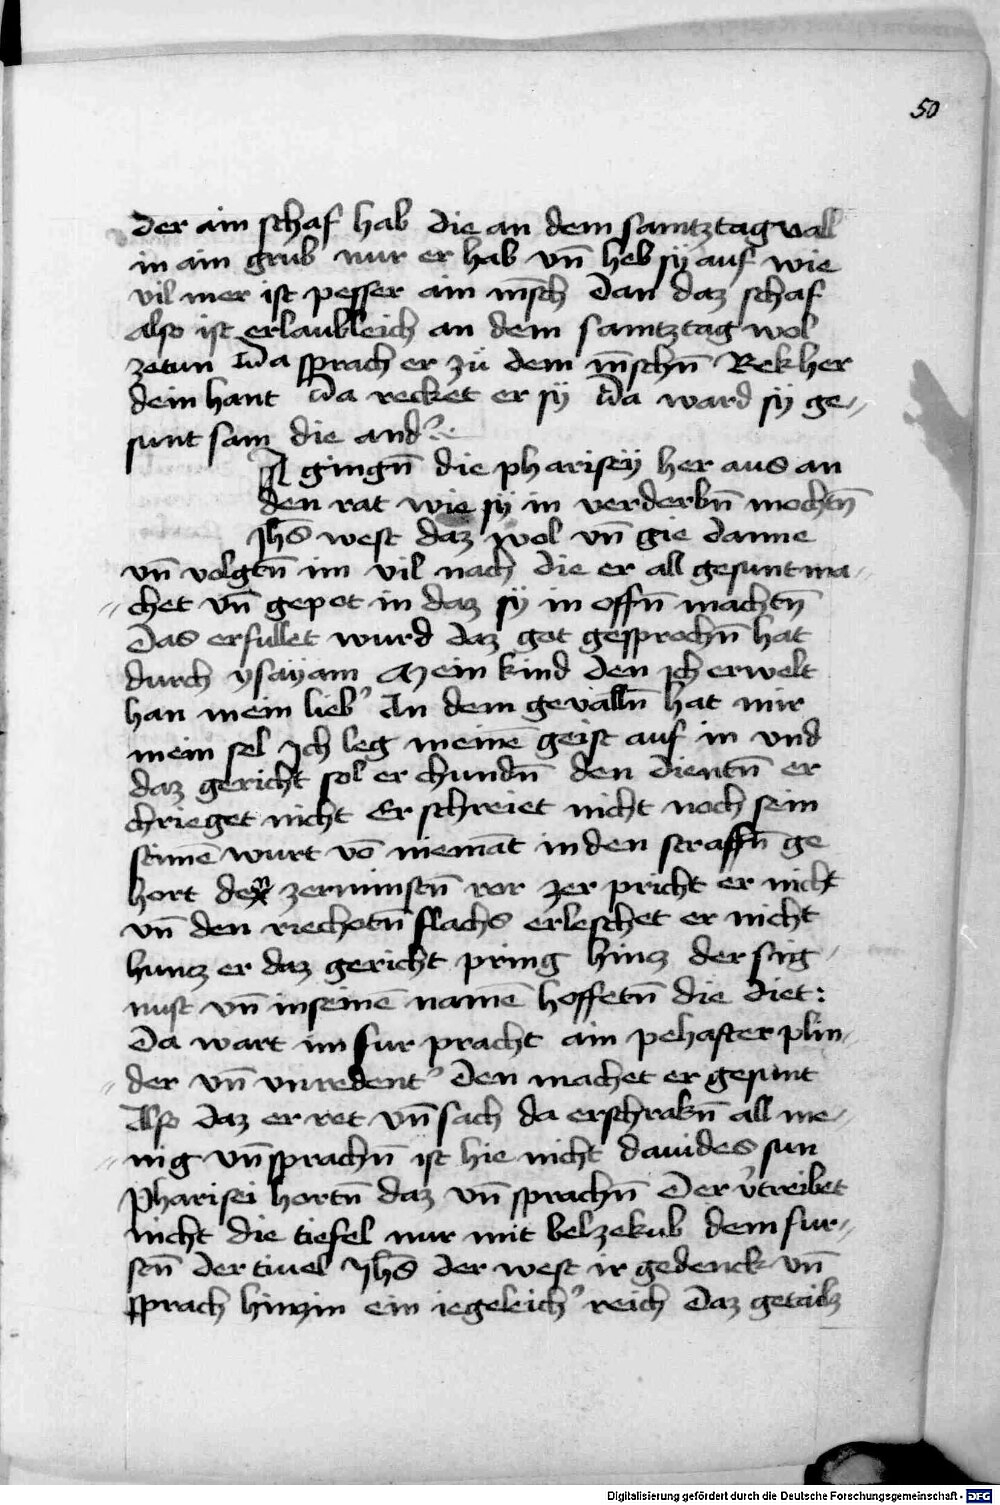 50
der ain schaf hab die an dem samtztag vall
in ain grub nur er hab vn̄ heb sÿ auf wie
vil mer ist pesser ain mēsch dan daz schaf
also ist erlaubleich an dem samtztag wol
zetun Da sprach er zů dem mēschn̄ Rekher
dein hant Da recket er sÿ Da ward sÿ ge-//
sunt sam die and'
gingn̄ die pharisey her aus an
den rat wie sÿ in verderbn̄ mochtn̄
Jhs̄ west daz wol vn̄ gie danne
vn̄ volgtn̄ im vil nach die er all gesunt ma-//
// chet vn̄ gepot in daz sÿ in offn̄ machtn̄
Das erfullet wurd daz got gesprochn̄ hat
durch ysayam Mein kind den ich erwelt
han mein lieb' In dem gevalln̄ hat mir
mein sel Ich leg meinē geist auf in vnd
daz gericht sol er chundn̄ den dientn̄ er
chrieget nicht Er schreiet nicht noch sein
stimē wurt vō niemāt in den strassn̄ ge
hort den zerminstn̄ ror zer pricht er nicht
vn̄ den riechotn̄ flachs erleschet er nicht
huntz er daz gericht pring hintz der sig-/
nust vn̄ in seinē namē hoffetn̄ die diet:
Da wart im fur pracht ain pehafter plin-//
// der vn̄ vnredent' Den machet er gesunt
Also daz er ret vn̄ sach da erschrakn̄ all me-//
// nig vn̄ sprachn̄ ist hie nicht dauides sun
Pharisei hortn̄ daz vn̄ sprachn̄ Der v'treibet
nicht die tiefel nur mit belzekub dem fur-//
stn̄ der tiuel Jhs̄ der west ir gedenck vn̄
sprach hinzin ein iegeleich' reich Daz getailz
Digitalisierung gefördert durch die Deutsche Forschungsgemeinschaft - DFG